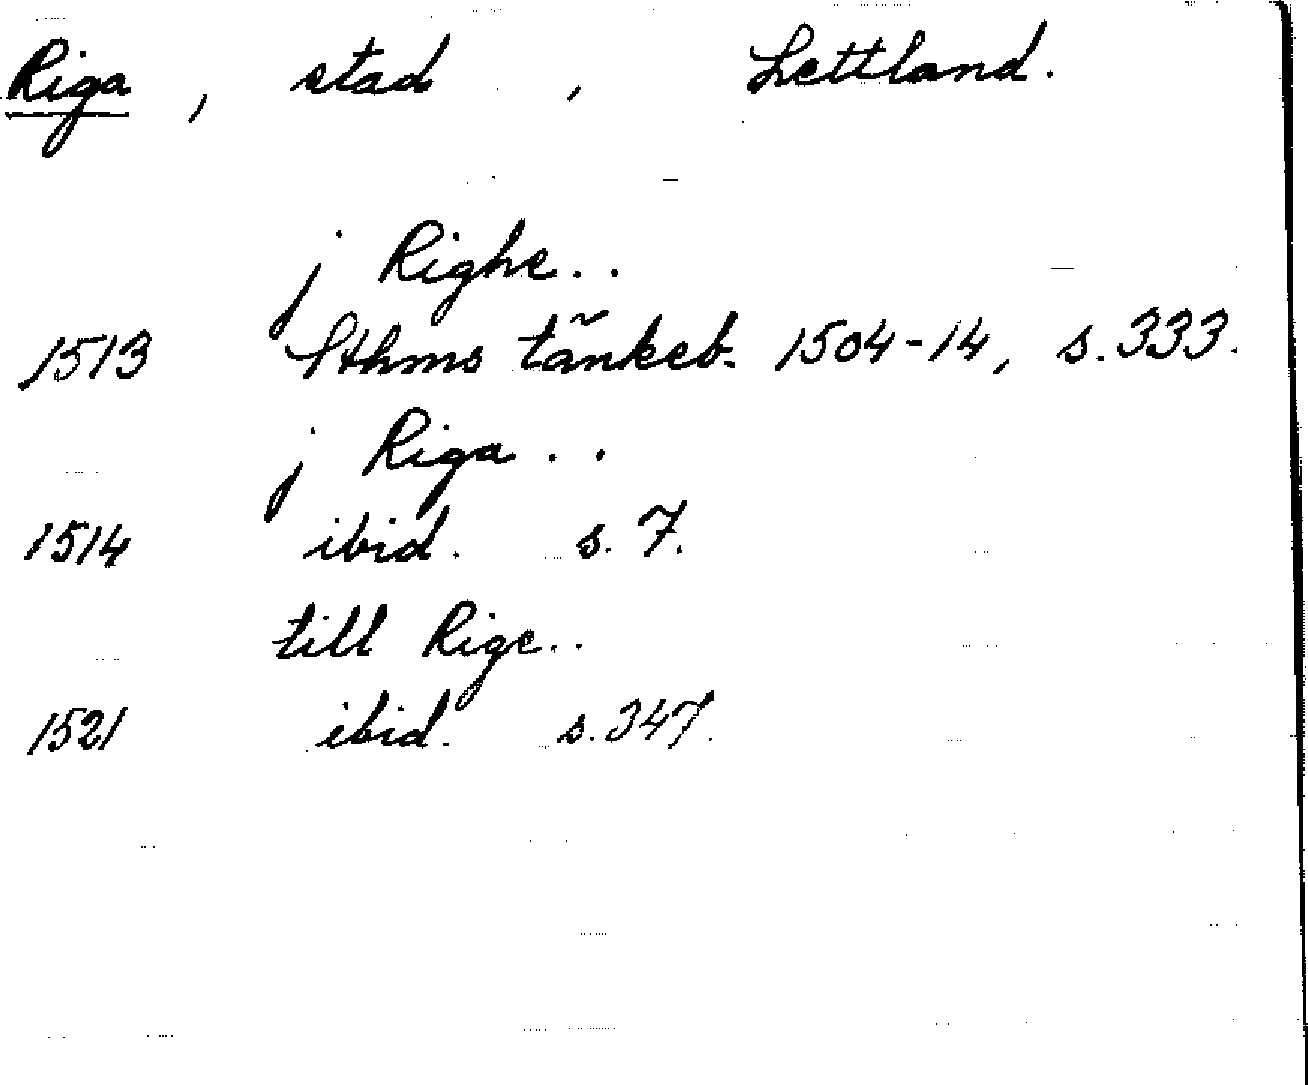 Riga, stad, Lettland.
j Righe..
1513 Sthms tänkeb. 1504-14, s. 333.
j Riga..
1514 ibid. s. 7.
till Rige..
1521 ibid. s. 347.